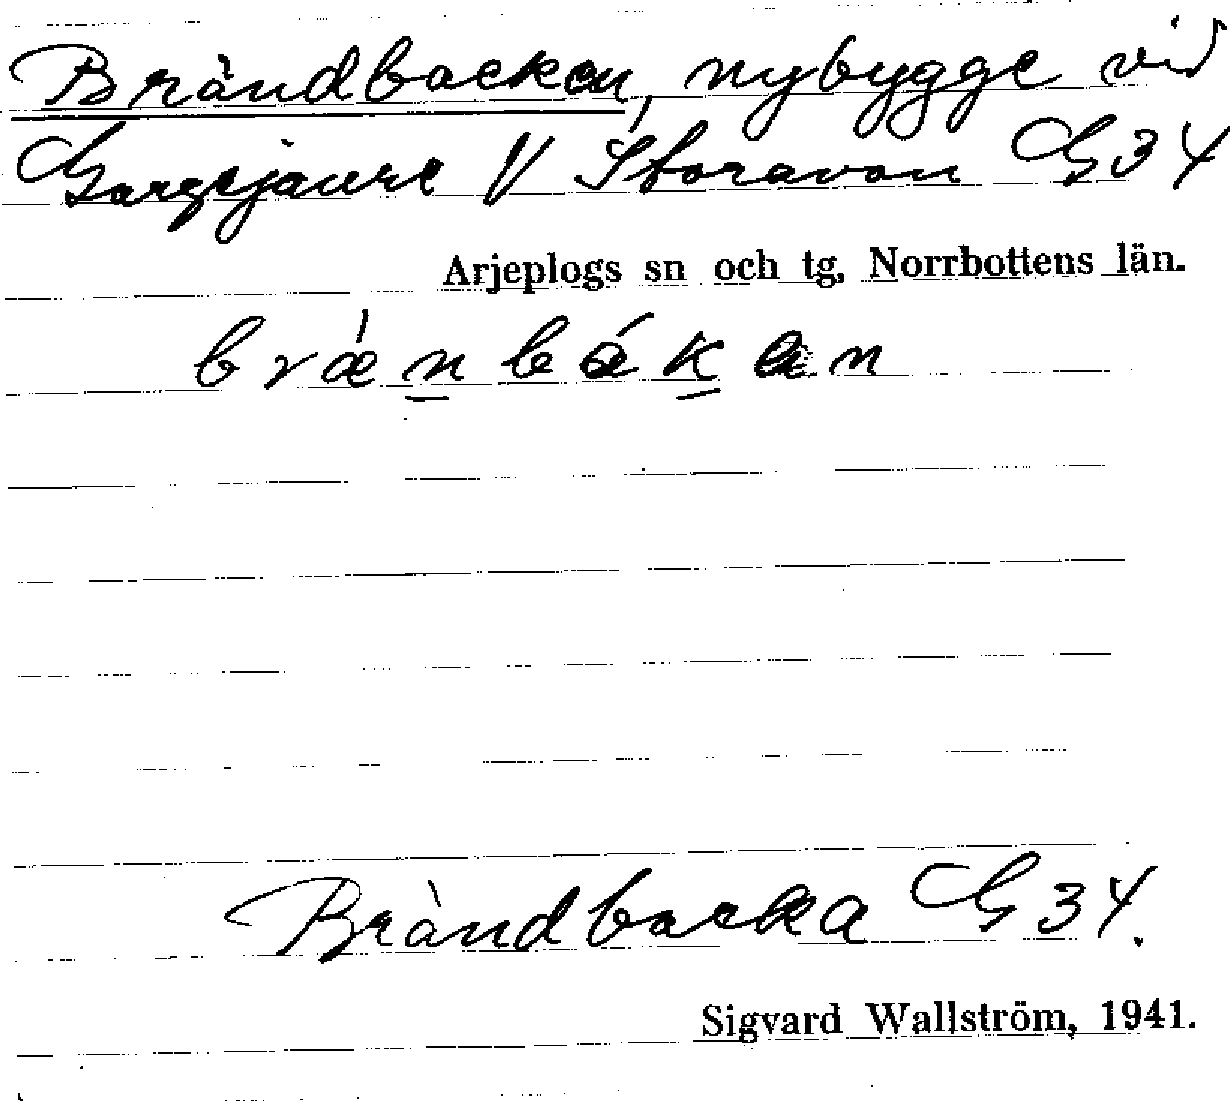 Brändbacken, nybygge vid
Gargejaure V Storavan G34
Arjeplogs sn och tg, Norrbottens län.
bræ´nbákan
Brändbacka G34.
Sigvard Wallström, 1941.